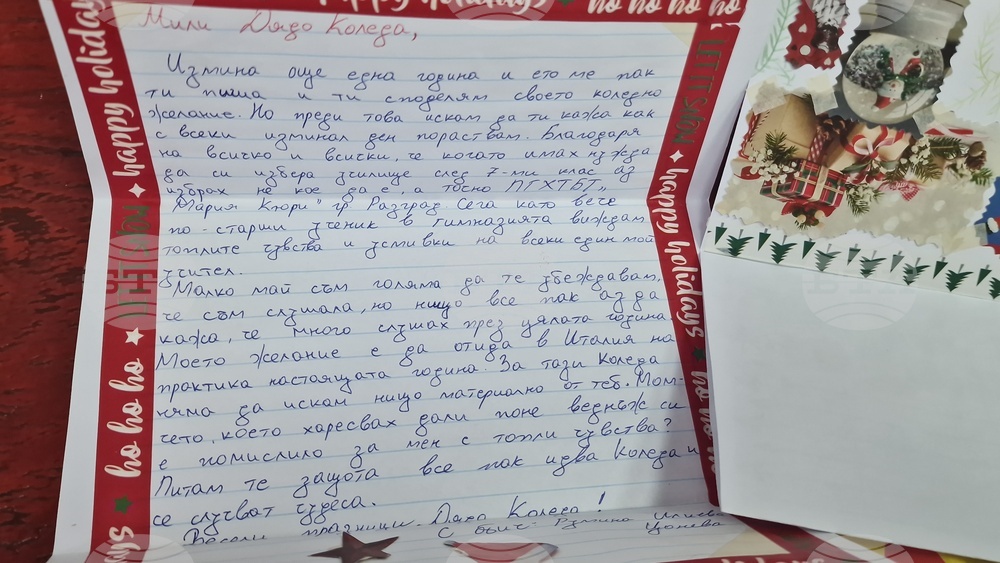 happy holidays
ho ho ho ho
Мили Дядо Коледа,
Измина още една година и ето ме пак
ти пиша и ти споделям своето коледно
желание. Но преди това искам да ти кажа как
с всеки изминал ден пораствам. Благодаря
на всичко и всички, че когато имах нужда
да си избера училище след 7-ми клас аз
избрах не кое да е, а точно ПГХТБТ „
Мария Кюри" гр Разград Сега като вече
по-старши ученик в гимназията виждам
топлите чувства и усмивки на всеки един мой
учител.
Малко май съм голяма да те убеждавам,
че съм слушала, но нищо все пак аз да
кажа, че много слушах през цялата година
Моето желание е да отида в Италия на
практика настоящата година. За тази Коледа
няма да искам нищо материално от теб. Мом-
чето, което харесвах дали поне веднъж си
е помислило за мен с топли чувства?
Питам те защото все пак идва Коледа и
се случват чудеса.
Весели празници, Дядо Коледа!
С обич:
Цонева
happy holidays
LET IT SNOW
ho ho ho
LET IT SNOW
happy holidays
ho ho